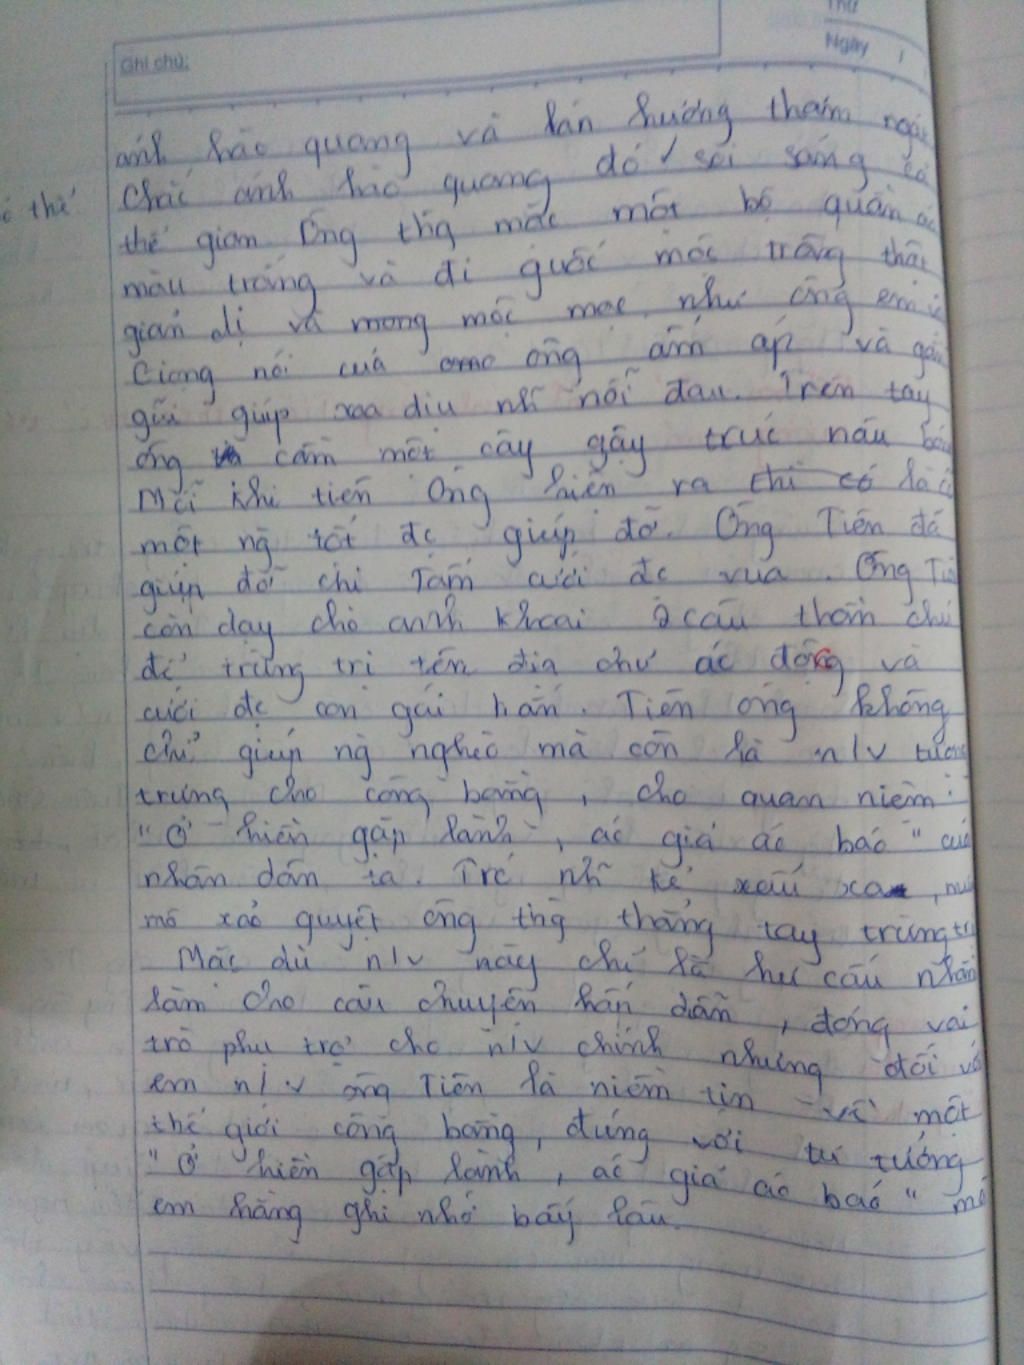 Thứ
Ghi chú:
Ngày /
ánh hào quang và làn hương thơm
Chiếc ánh hào quang đó soi sáng cả
thế
thế gian Ông thg mặc một bộ quần áo
màu trắng và đi guốc mộc trông thật
gian dị và mong mộc mạc, như ông em
Giọng nói của ông ấm áp và gần
gũi giúp xoa dịu nh~ nỗi đau. Trên tay
ông cầm một cây gậy trúc nâu
Mỗi khi tiên Ông hiện ra thì có là có
một ng̀ tốt đc giúp đỡ. Ông Tiên đã
giúp đỡ chị Tấm cưới đc vua. Ông
còn dạy cho anh Khoai 2 câu thần chú
để trừng trị tên địa chủ ác động và
cưới đc con gái hắn. Tiên ông không
chỉ giúp ng̀ nghèo mà còn là n/v tượng
trưng cho công bằng, cho quan niệm:
"Ở hiền gặp lành, ác giả ác báo" của
nhân dân ta. Trc nh~ kẻ xấu xa,
mô xảo quyệt ông thg thẳng tay trừng trị
Mặc dù n/v này chỉ là hư cấu nhằm
làm cho câu chuyện hấn dẫn, đóng vai
trò phụ trợ cho n/v chính nhưng đối với
em n/v ông Tiên là niềm tin về một
thế giới công bằng, đúng với tư tưởng
"Ở hiền gặp lành, ác giả ác báo" mà
em hằng ghi nhớ bấy lâu.